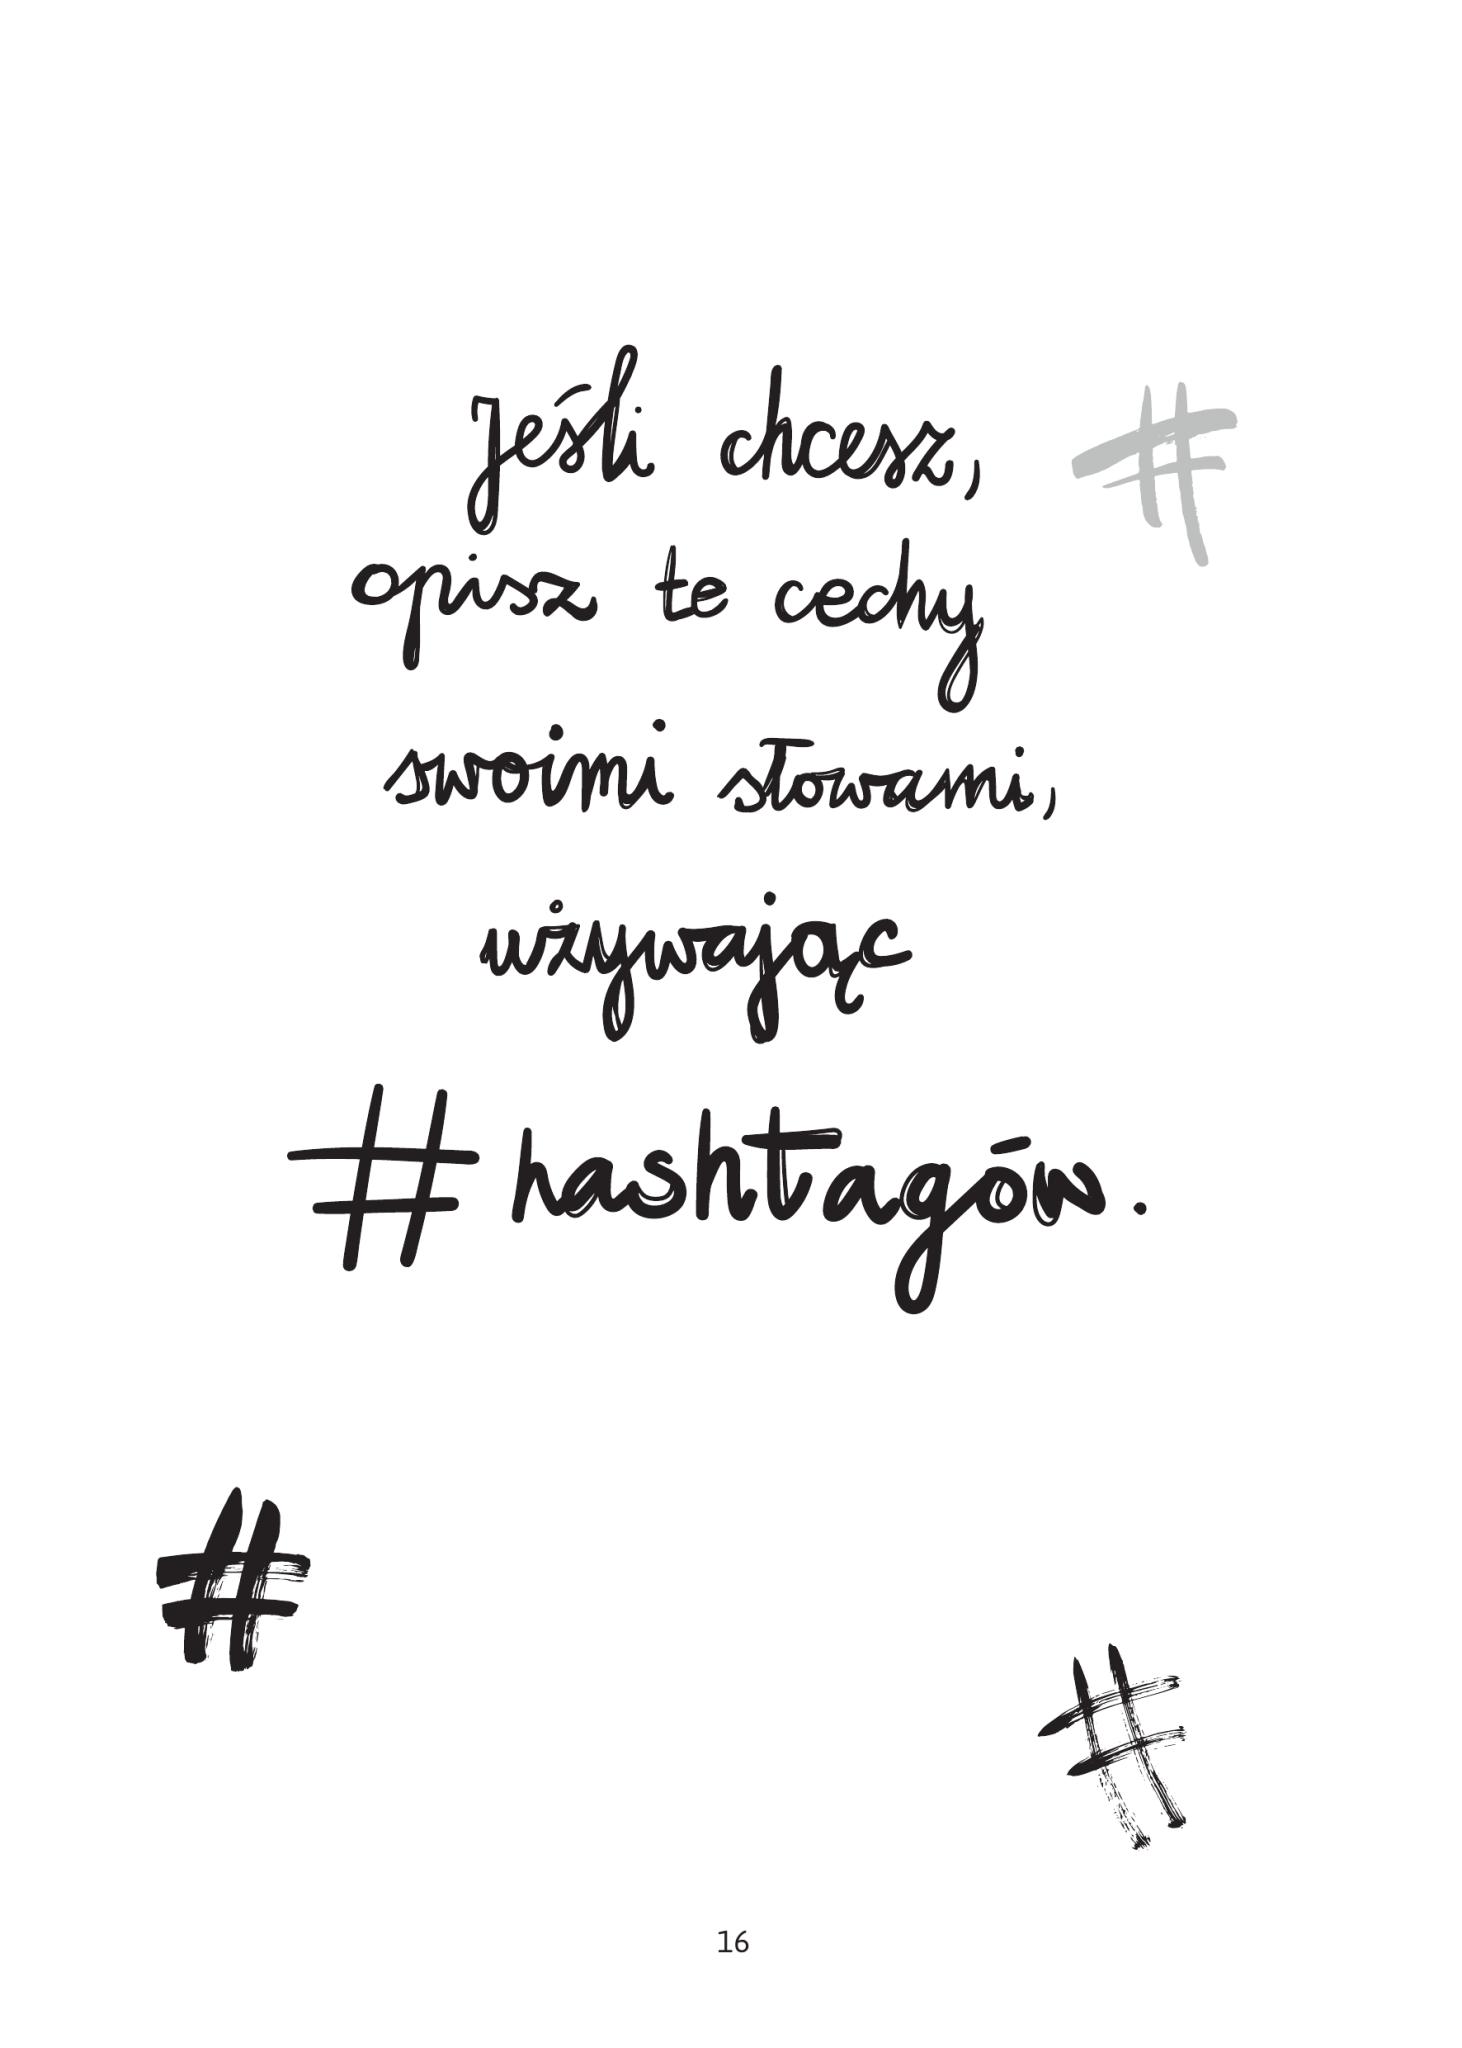 Jeśli chcesz,
#
opisz te cechy
swoimi słowami,
używając
#hashtagów.
#
#
16